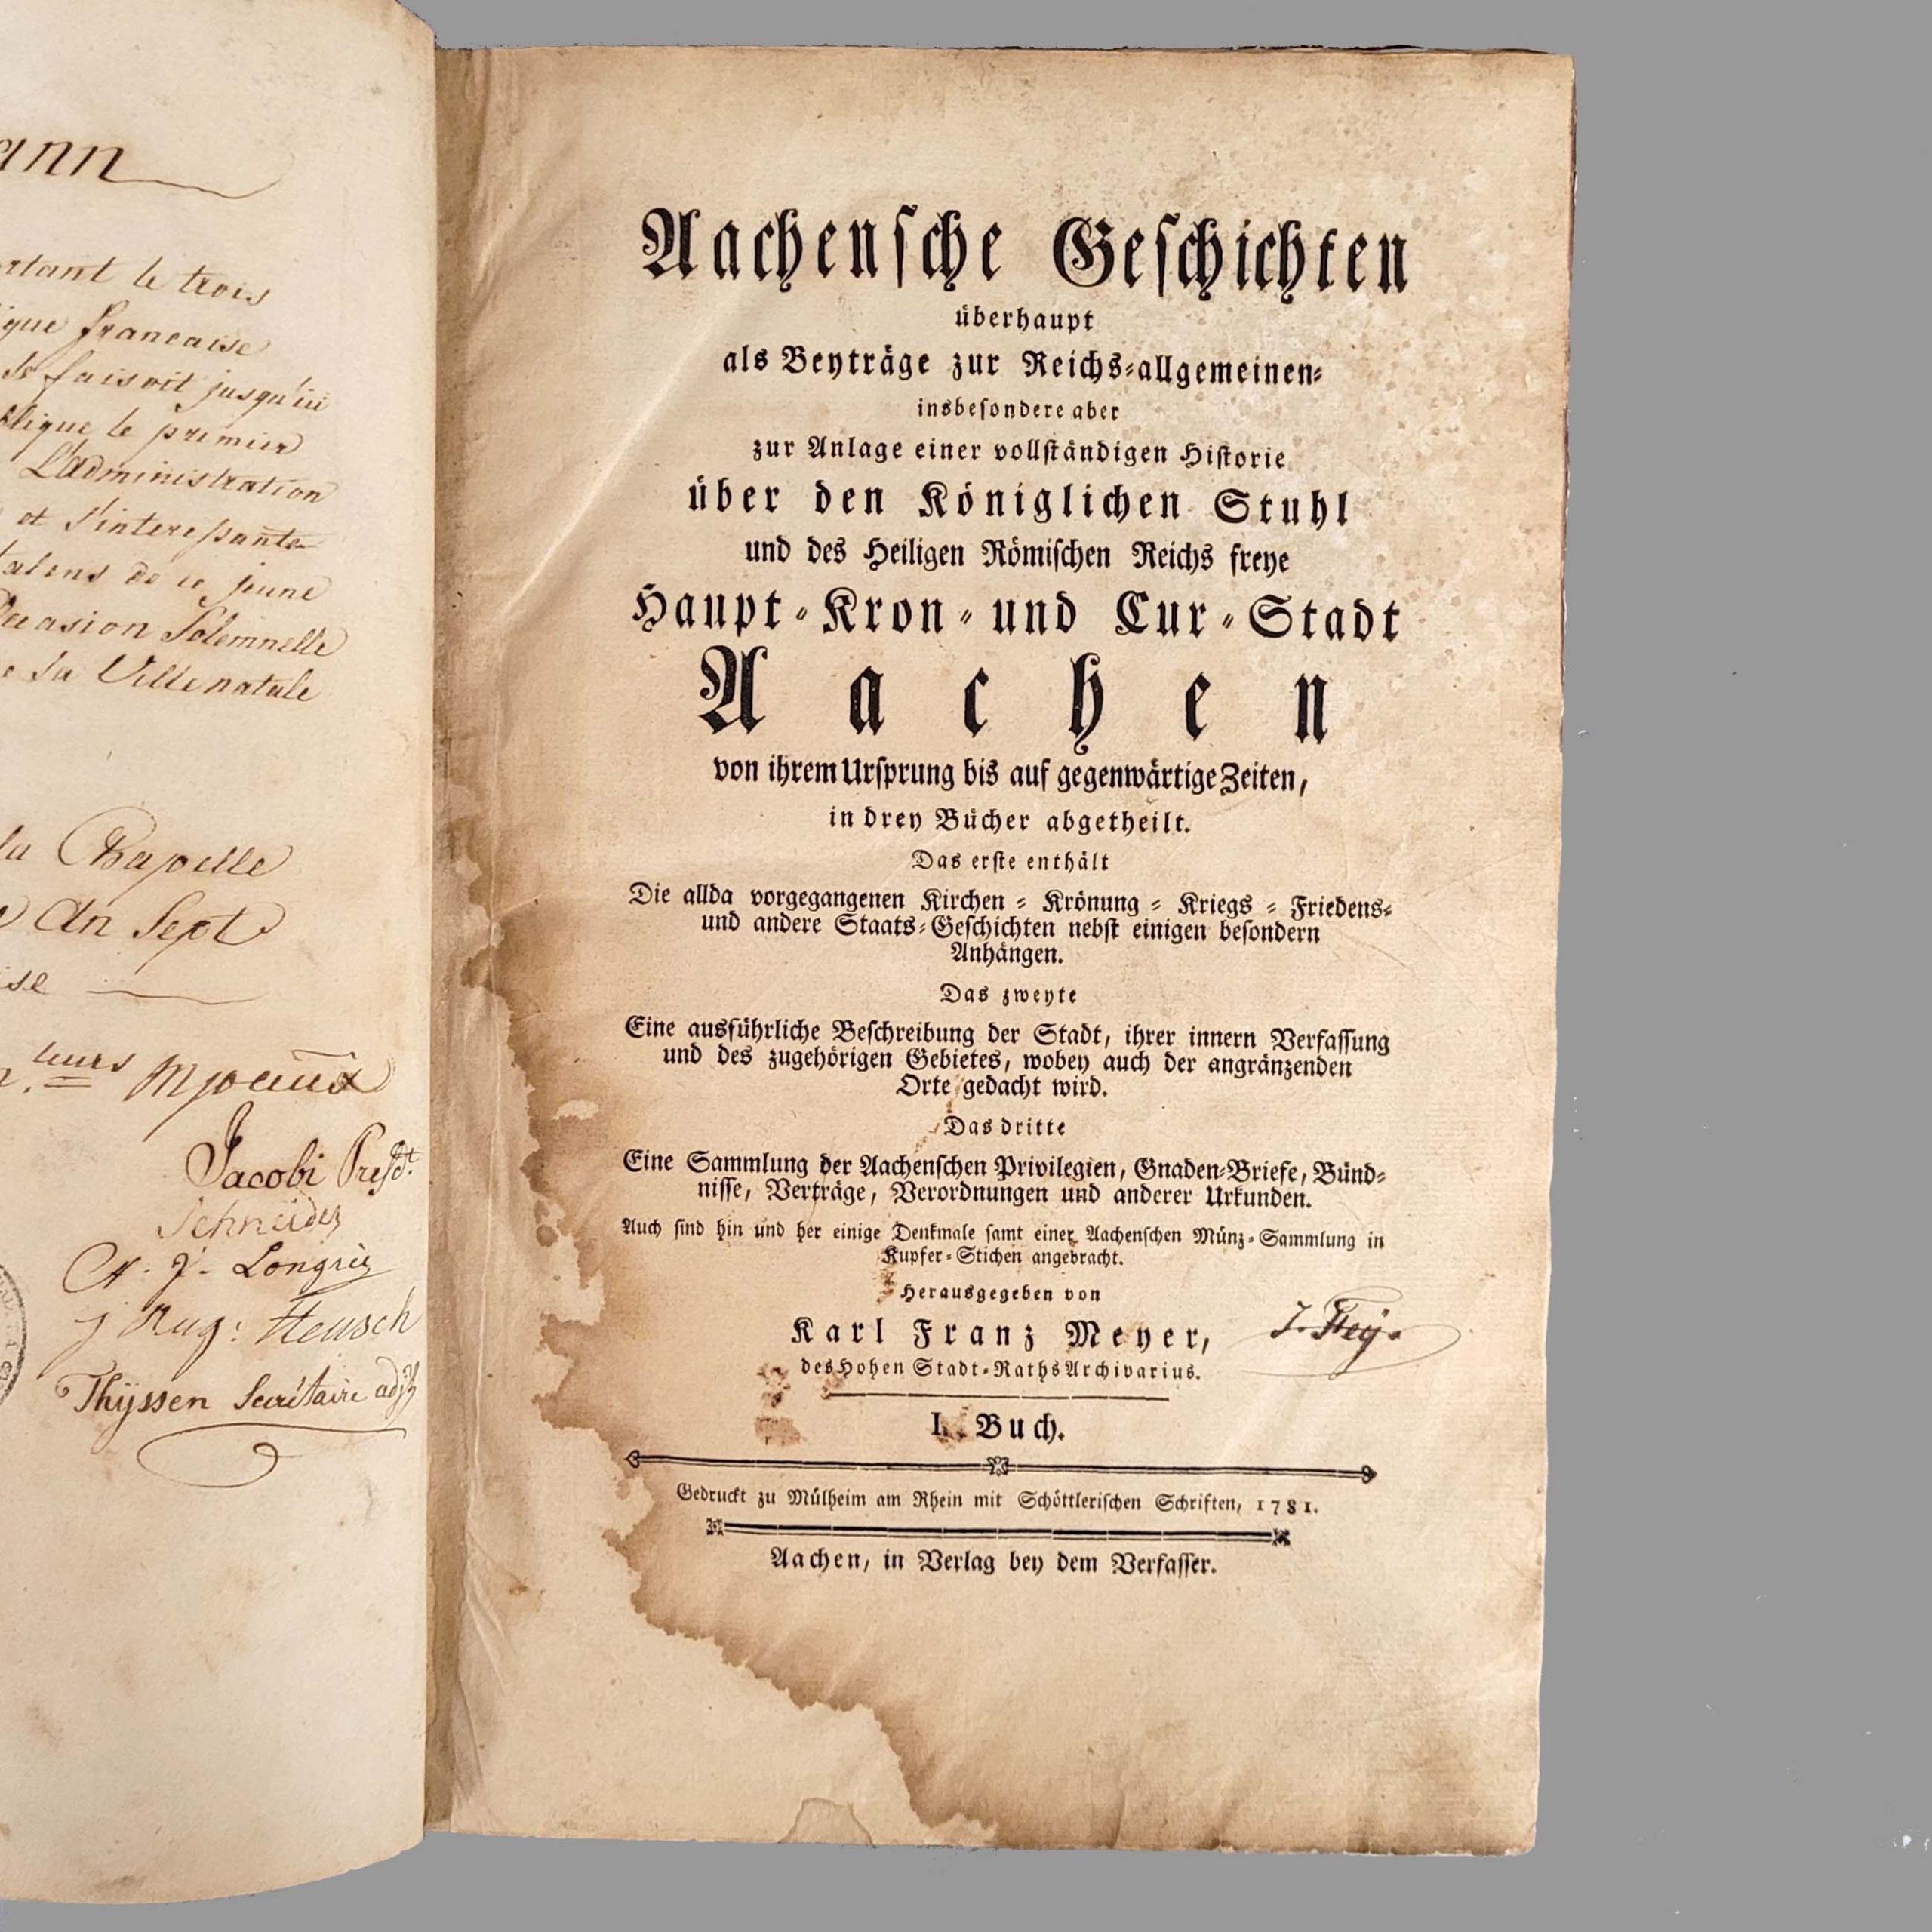 ann
le trois
française
faisoit jusqu'ici
le premier
L'administration
et l'interessante
talens de ce jeune
occasion Solemnelle
sa Ville natale
la Chapelle
An Sept
Jacobi Presdt.
Schneider
J. Longrée
J Aug: Heusch
Thÿssen Secrétaire adjt
Aachensche Geschichten
überhaupt
als Beyträge zur Reichs-allgemeinen-
insbesondere aber
zur Anlage einer vollständigen Historie
über den Königlichen Stuhl
und des Heiligen Römischen Reichs freye
Haupt-Kron-und Cur-Stadt
Aachen
von ihrem Ursprung bis auf gegenwärtige Zeiten,
in drey Bücher abgetheilt.
Das erste enthält
Die allda vorgegangenen Kirchen-Krönung-Kriegs-Friedens-
und andere Staats-Geschichten nebst einigen besondern
Anhängen.
Das zweyte
Eine ausführliche Beschreibung der Stadt, ihrer innern Verfassung
und des zugehörigen Gebietes, wobey auch der angränzenden
Orte gedacht wird.
Das dritte
Eine Sammlung der Aachenschen Privilegien, Gnaden-Briefe, Bünd-
nisse, Verträge, Verordnungen und anderer Urkunden.
Auch sind hin und her einige Denkmale samt einer Aachenschen Münz-Sammlung in
Kupfer-Stichen angebracht.
Herausgegeben von
Karl Franz Meyer,
des Hohen Stadt-Raths Archivarius.
J. Fey.
I. Buch.
Gedruckt zu Mülheim am Rhein mit Schöttlerischen Schriften, 1781.
Aachen, in Verlag bey dem Verfasser.